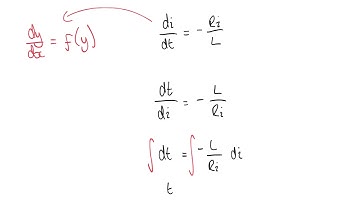 dy/dx = f(y)
di/dt = - Ri/L
dt/di = - L/Ri
∫ dt = ∫ - L/Ri di
t